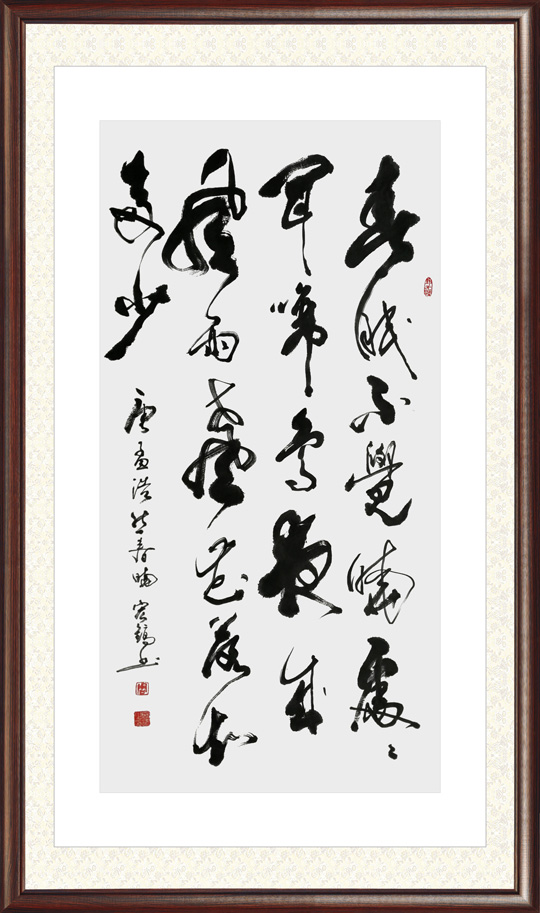 春眠不覺曉處々
聞啼鳥夜來
風雨聲花落知
多少
唐孟浩然春曉 书